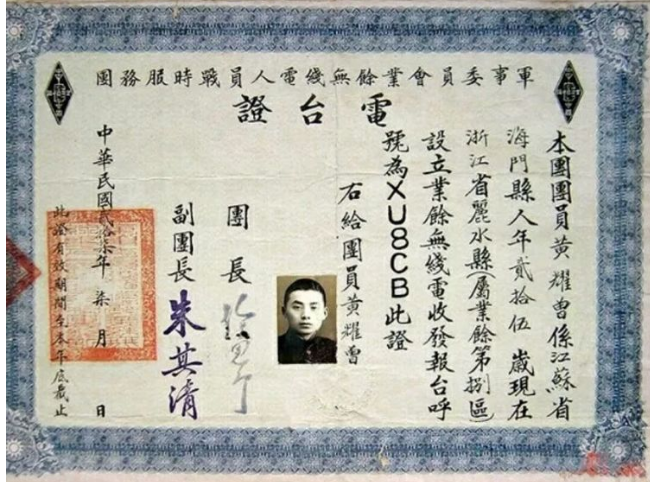 軍事委員會業餘無綫電人員戰時服務團
電台證
本團團員黃耀曾係江蘇省
海門縣人年貳拾伍歲現在
浙江省麗水縣屬業餘第捌區
設立業餘無綫電收發報台呼
號為XU8CB此證
右給團員黃耀曾
團長
副團長朱其清
中華民國貳拾柒年柒月 日
此證有效期間至本年底截止